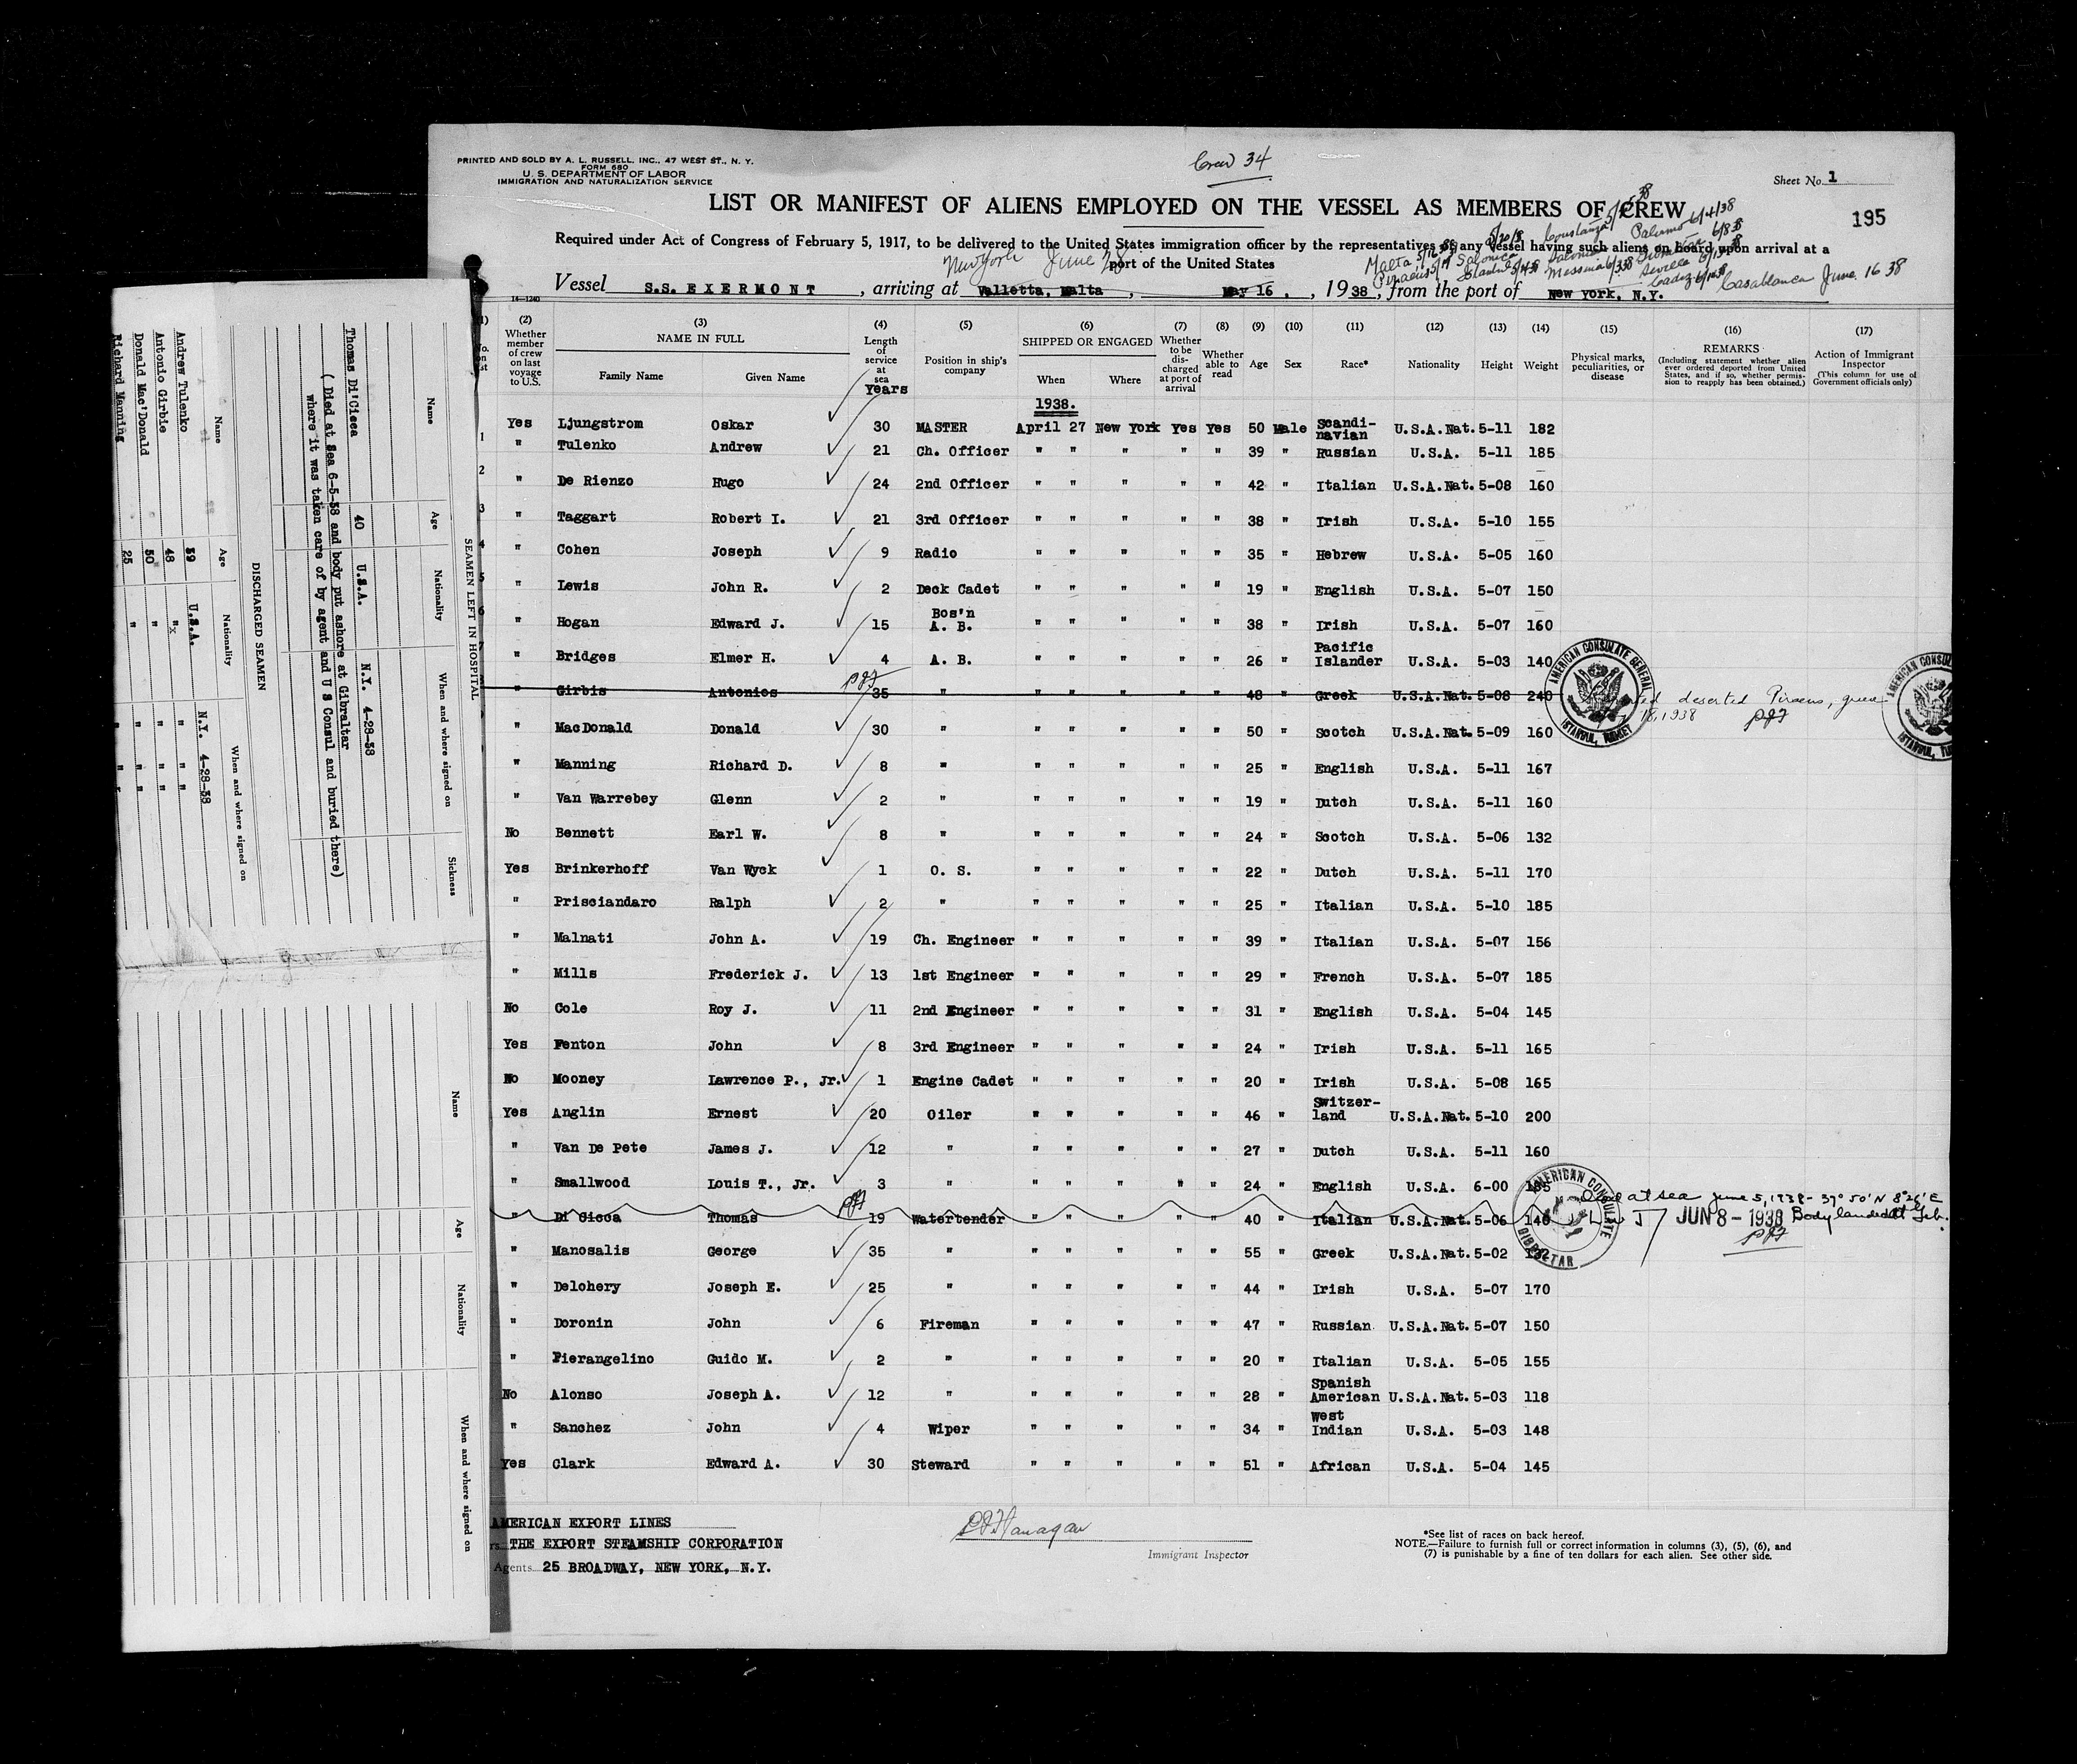 PRINTED AND SOLD BY A. L. RUSSELL, INC., 47 WEST ST., N. Y.
FORM 680
U. S. DEPARTMENT OF LABOR
IMMIGRATION AND NATURALIZATION SERVICE
Crew 34
Sheet No. 1
LIST OR MANIFEST OF ALIENS EMPLOYED ON THE VESSEL AS MEMBERS OF CREW
195
Required under Act of Congress of February 5, 1917, to be delivered to the United States immigration officer by the representatives of any vessel having such aliens on board upon arrival at a
port of the United States
New York June 28
Malta 5/16/38 Salonica Constanza Palermo 6/4/38
Piraeus Istanbul Messina Sevilla Cadiz Casablanca June 16 38
Vessel S.S. EXERMONT, arriving at Valletta, Malta, May 16, 1938, from the port of New York, N.Y.
14-1240
(1) (2) (3) (4) (5) (6) (7) (8) (9) (10) (11) (12) (13) (14) (15) (16) (17)
Whether member of crew on last voyage to U.S. NAME IN FULL Family Name Given Name Length of service at sea Years Position in ship's company SHIPPED OR ENGAGED When Where Whether to be discharged at port of arrival Whether able to read Age Sex Race* Nationality Height Weight Physical marks, peculiarities, or disease REMARKS (Including statement whether alien ever ordered deported from United States, and if so, whether permission to reapply has been obtained.) Action of Immigrant Inspector (This column for use of Government officials only)
1938.
Yes Ljungstrom Oskar 30 MASTER April 27 New York Yes Yes 50 Male Scandi-navian U.S.A.Nat. 5-11 182
1 " Tulenko Andrew 21 Ch. Officer " " " " " 39 " Russian U.S.A. 5-11 185
2 " De Rienzo Hugo 24 2nd Officer " " " " " 42 " Italian U.S.A.Nat. 5-08 160
3 " Taggart Robert I. 21 3rd Officer " " " " " 38 " Irish U.S.A. 5-10 155
4 " Cohen Joseph 9 Radio " " " " " 35 " Hebrew U.S.A. 5-05 160
5 " Lewis John R. 2 Deck Cadet " " " " " 19 " English U.S.A. 5-07 150
6 " Hogan Edward J. 15 Bos'n A. B. " " " " " 38 " Irish U.S.A. 5-07 160
7 " Bridges Elmer H. 4 A. B. " " " " " 26 " Pacific Islander U.S.A. 5-03 140
" Girbis Antonios 35 " " " " " " 48 " Greek U.S.A.Nat. 5-08 240 deserted Piraeus, Greece
18, 1938
" MacDonald Donald 30 " " " " " " 50 " Scotch U.S.A.Nat. 5-09 160
" Manning Richard D. 8 " " " " " " 25 " English U.S.A. 5-11 167
" Van Warrebey Glenn 2 " " " " " " 19 " Dutch U.S.A. 5-11 160
No Bennett Earl W. 8 " " " " " " 24 " Scotch U.S.A. 5-06 132
Yes Brinkerhoff Van Wyck 1 O. S. " " " " " 22 " Dutch U.S.A. 5-11 170
" Prisciandaro Ralph 2 " " " " " " 25 " Italian U.S.A. 5-10 185
" Malnati John A. 19 Ch. Engineer " " " " " 39 " Italian U.S.A. 5-07 156
" Mills Frederick J. 13 1st Engineer " " " " " 29 " French U.S.A. 5-07 185
No Cole Roy J. 11 2nd Engineer " " " " " 31 " English U.S.A. 5-04 145
Yes Fenton John 8 3rd Engineer " " " " " 24 " Irish U.S.A. 5-11 165
No Mooney Lawrence P., Jr. 1 Engine Cadet " " " " " 20 " Irish U.S.A. 5-08 165
Yes Anglin Ernest 20 Oiler " " " " " 46 " Switzer-land U.S.A.Nat. 5-10 200
" Van De Pete James J. 12 " " " " " " 27 " Dutch U.S.A. 5-11 160
" Smallwood Louis T., Jr. 3 " " " " " " 24 " English U.S.A. 6-00
" Di Cicca Thomas 19 Watertender " " " " " 40 " Italian U.S.A.Nat. 5-06 140 Died at sea June 5, 1938 - 37° 50' N 8°26' E
JUN 8 - 1938 Body landed at Gib.
" Manosalis George 35 " " " " " " 55 " Greek U.S.A.Nat. 5-02
" Delohery Joseph E. 25 " " " " " " 44 " Irish U.S.A. 5-07 170
" Doronin John 6 Fireman " " " " " 47 " Russian U.S.A.Nat. 5-07 150
" Pierangelino Guido M. 2 " " " " " " 20 " Italian U.S.A. 5-05 155
No Alonso Joseph A. 12 " " " " " " 28 " Spanish American U.S.A.Nat. 5-03 118
" Sanchez John 4 Wiper " " " " " 34 " West Indian U.S.A. 5-03 148
Yes Clark Edward A. 30 Steward " " " " " 51 " African U.S.A. 5-04 145
AMERICAN CONSULATE GENERAL ISTANBUL, TURKEY
AMERICAN CONSULATE GIBRALTAR
AMERICAN EXPORT LINES
THE EXPORT STEAMSHIP CORPORATION
Agents 25 BROADWAY, NEW YORK, N.Y.
PJ Flanagan
Immigrant Inspector
*See list of races on back hereof.
NOTE.—Failure to furnish full or correct information in columns (3), (5), (6), and
(7) is punishable by a fine of ten dollars for each alien. See other side.
SEAMEN LEFT IN HOSPITAL
Name Age Nationality When and where signed on Sickness
Thomas Di'Cicca 40 U.S.A. N.Y. 4-28-38
( Died at Sea 6-5-38 and body put ashore at Gibraltar
where it was taken care of by agent and U S Consul and buried there)
DISCHARGED SEAMEN
Name Age Nationality When and where signed on
Andrew Tulenko 39 U.S.A. N.Y. 4-28-38
Antonio Girbie 48 " " "
Donald Mac'Donald 50 " " "
Richard Manning 25 " " "
Name Age Nationality When and where signed on